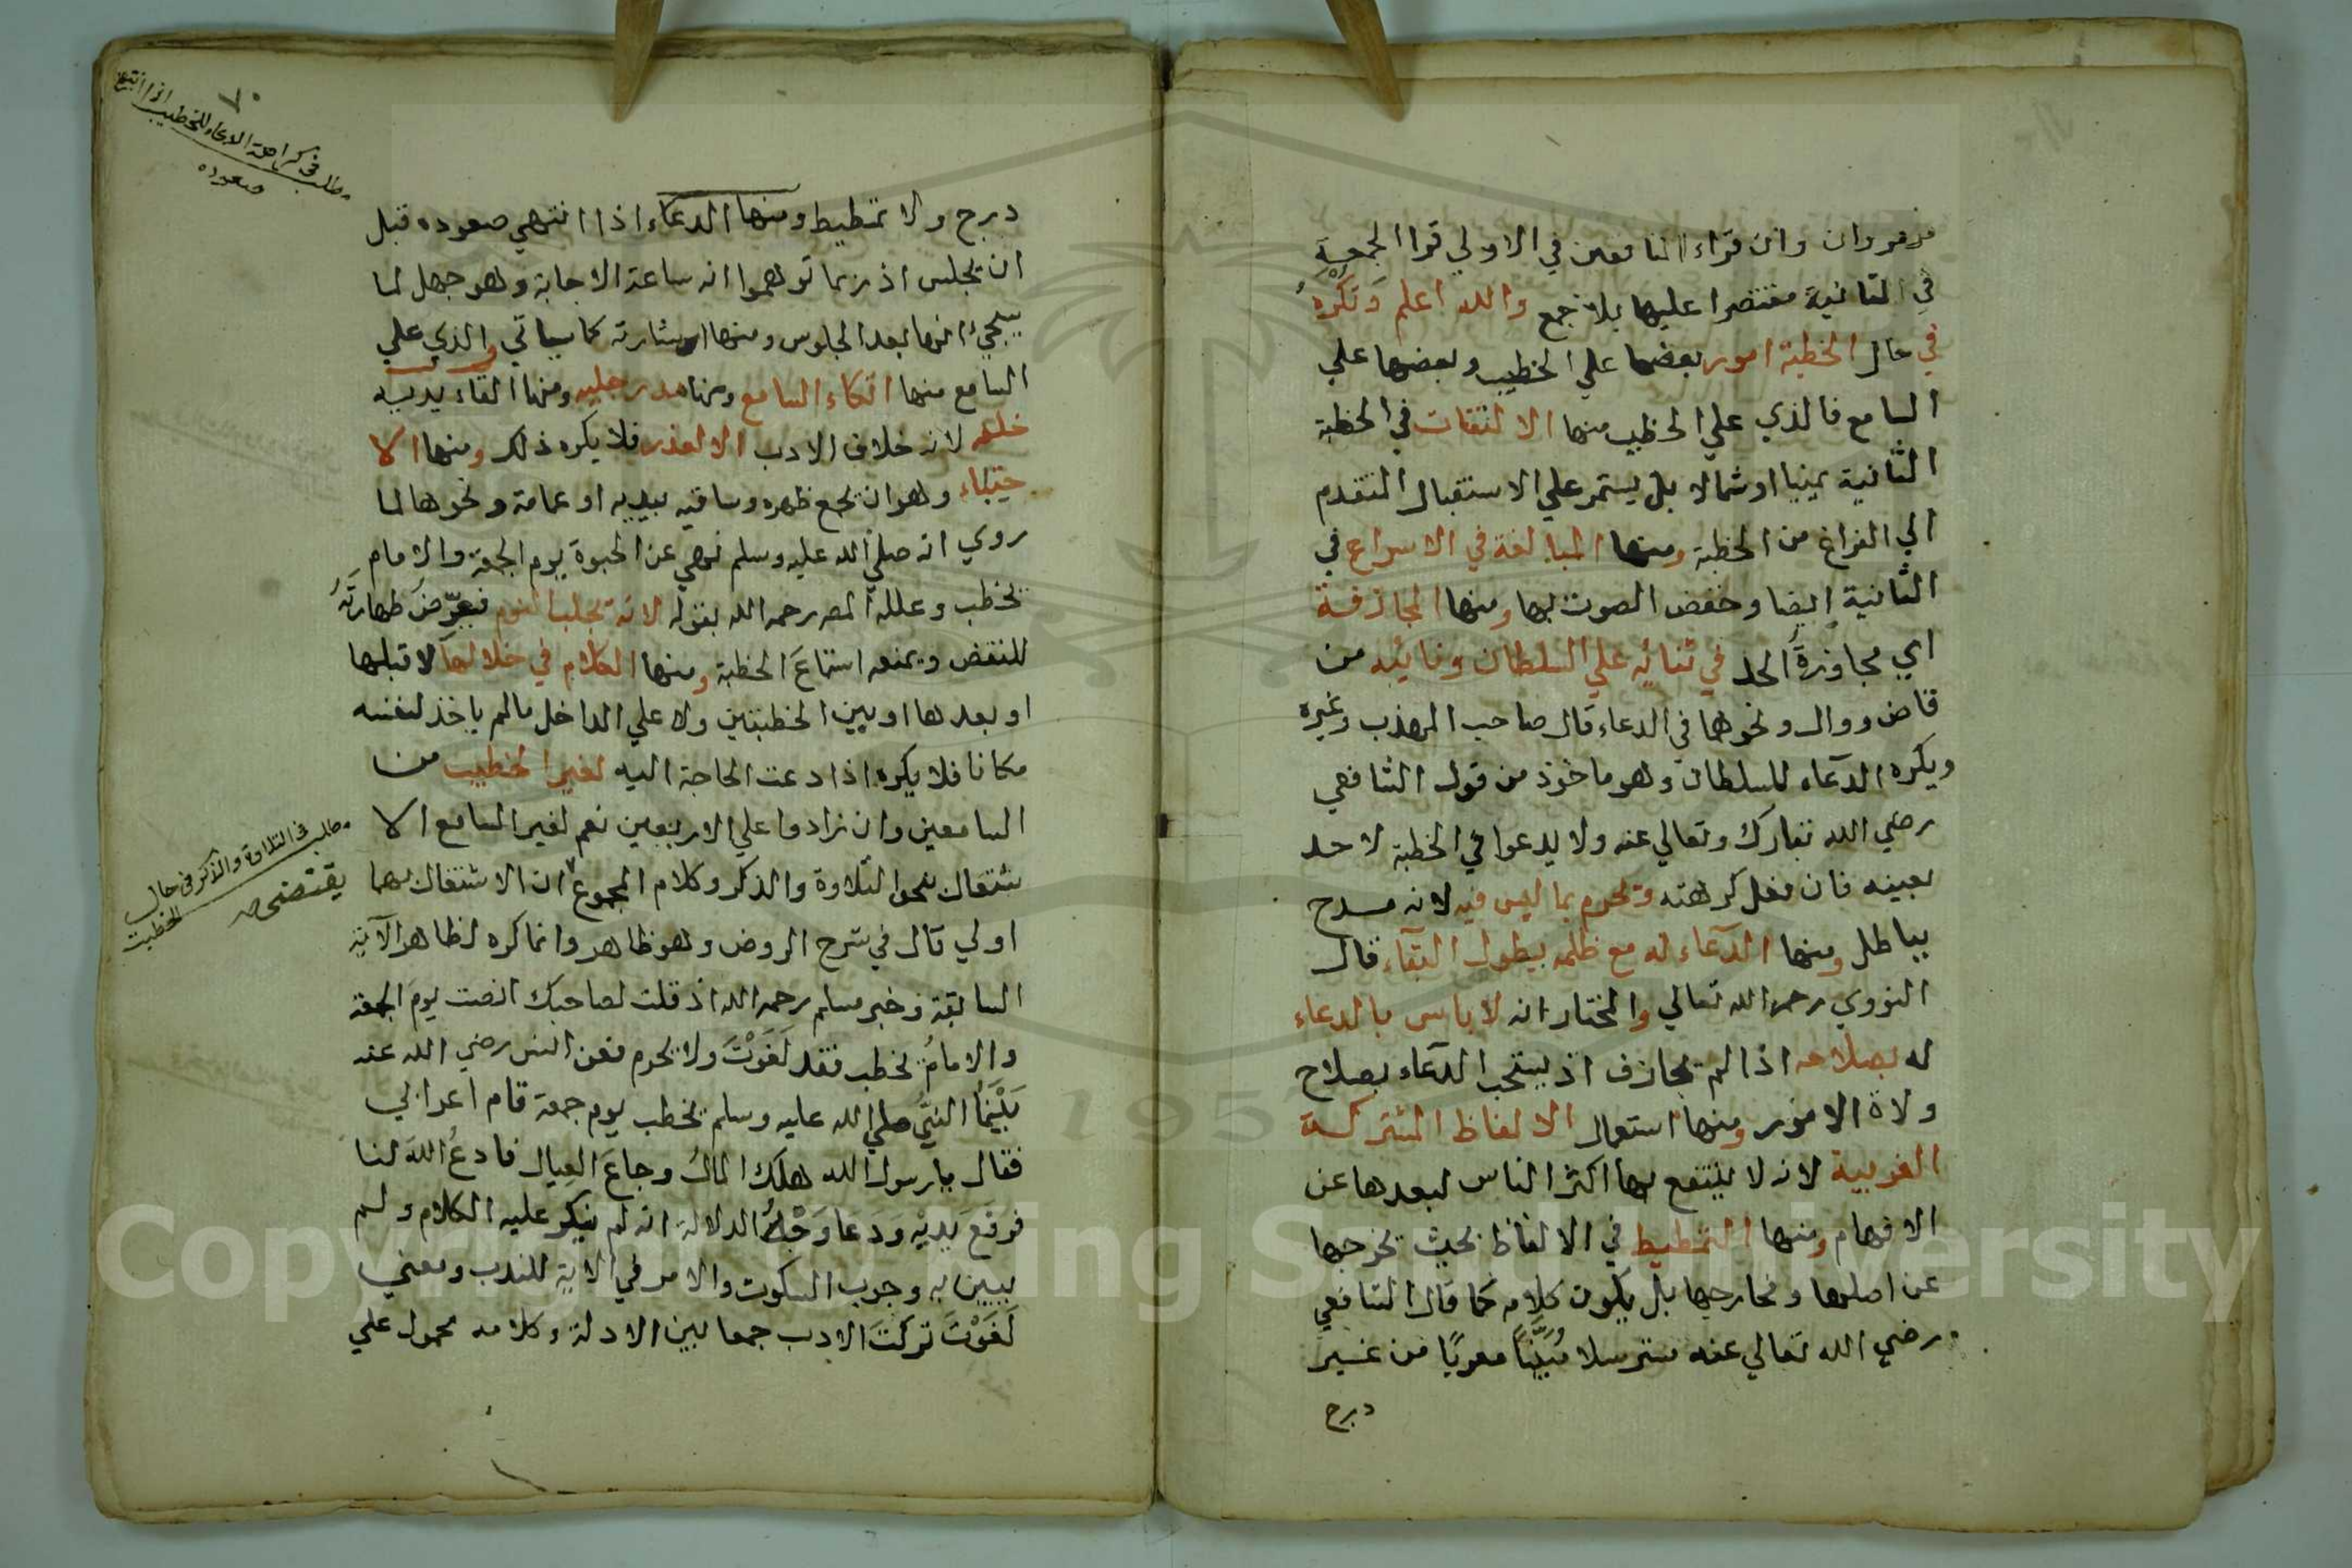 مزمروان وان قراء المنافقين في الاولي قرا الجمعة
في الثانية مقتصرا عليها بلا جمع والله اعلم وتكره
في حال الخطبة امور بعضها علي الخطيب وبعضها علي
السامع فالذي علي الخطيب منها الالتفات في الخطبة
الثانية يمينا اوشمالا بل يستمر علي الاستقبال المتقدم
الي الفراغ من الخطبة ومنها المبالغة في الاسراع في
الثانية ايضا وخفض الصوت بها ومنها المجازفة
اي مجاوزة الحد في ثنائه علي السلطان ونائبه من
قاض ووال ونحوهما في الدعاء قال صاحب المهذب وغيره
ويكره الدعاء للسلطان وهو ماخوذ من قول الشافعي
رضي الله تبارك وتعالي عنه ولا يدعوا في الخطبة لاحد
بعينه فان فعل كرهته وتحرم بما ليس فيه لانه مدح
بباطل ومنها الدعاء له مع ظلمه بطول البقاء قال
النووي رحمه الله تعالي والمختار انه لا باس بالدعاء
له بصلاحه اذا لم يجازف اذ يستحب الدعاء بصلاح
ولاة الامور ومنها استعمال الالفاظ المشتركة
الغريبة لانه لا ينتفع بها اكثر الناس لبعدها عن
الافهام ومنها التمطيط في الالفاظ بحيث يخرجها
عن اصلها ومخارجها بل يكون كلامه كما قال الشافعي
رضي الله تعالي عنه مترسلا مُبَيَّنًا معربًا من غير
درج
٧٠
مطلب في كراهة الدعاء للخطيب اذا انتهي
صعوده
درج ولا تمطيط ومنها الدعاء اذا انتهي صعوده قبل
ان يجلس اذ ربما توهموا انه ساعة الاجابة وهو جهل لما
سيجيء انها بعد الجلوس ومنها اشارته كما سياتي والذي علي
السامع منها اتكاء السامع ومنها مد رجليه ومنها القاء يديه
خلفه لانه خلاف الادب الا لعذر فلا يكره ذلك ومنها الا
حتباء وهو ان يجمع ظهره وساقيه بيديه او عمامة ونحوها لما
روي انه صلي الله عليه وسلم نهي عن الحبوة يوم الجمعة والامام
يخطب وعلله المص رحمه الله بقوله لانه يجلب النوم فيعرّض طهارتَه
للنقض ويمنعه استماعَ الخطبة ومنها الكلام في خلالها لا قبلها
او بعدها او بين الخطبتين ولا علي الداخل مالم ياخذ لنفسه
مكانا فلا يكره اذا دعت الحاجة اليه لغير الخطيب من
السامعين وان زادوا علي الاربعين نعم لغير السامع الا
شتغال بنحو التلاوة والذكر وكلام المجموع ان الاشتغال بهما
مطلب في التلاوة والذكر في حال
الخطبة
يقتضي صح
اولي قال في شرح الروض وهو ظاهر وانما كره لظاهر الآية
السابقة وخبر مسلم رحمه الله اذ قلت لصاحبك انصت يوم الجمعة
والامامُ يخطب فقد لَغَوْتَ ولا يحرم فعن انس رضي الله عنه
بَيْنَمَا النبيُّ صلي الله عليه وسلم يخطب يوم جمعة قام اعرابي
فقال يا رسول الله هلك المالُ وجاعَ العيال فادعُ اللهَ لنا
فرفعَ يديْه وَدَعَا وَجْهُ الدلالة انه لم ينكر عليه الكلام ولم
يبين به وجوب السكوت والامر في الاية للندب ومعني
لَغَوْتَ تركتَ الادب جمعا بين الادلة وكلامه محمول علي
Copyright © King Saud University
1957